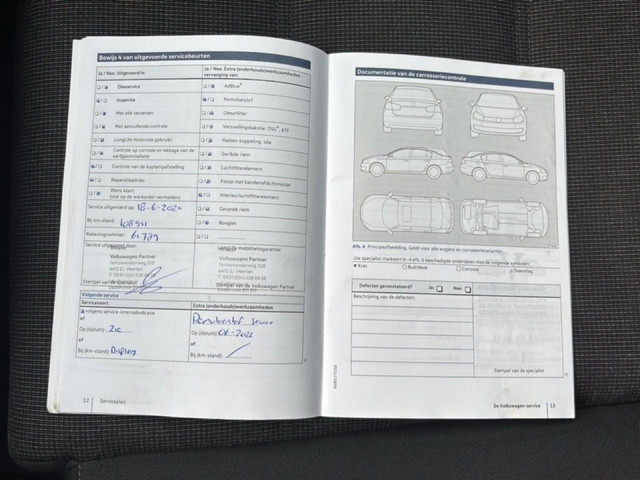 Bewijs 4 van uitgevoerde servicebeurten
Ja / Nee. Uitgevoerd is:
Ja / Nee. Extra (onderhouds)werkzaamheden
vervanging van:
Olieservice
AdBlue®
Inspectie
Remvloeistof
Met alle verversen
Dieselfilter
Met aanvullende controle
Versnellingsbakolie: DSG®, ATF
LongLife motorolie gebruikt
Haldex koppeling: olie
Controle op corrosie en lekkage van de
aardgasinstallatie
Getribde riem
Controle van de koplampafstelling
Luchtfilterelement
Reparatieadvies
Flesje met bandenafdichtmiddel
Wens klant
(ook op de werkorder vermelden)
Interieurluchtfilterelement
Service uitgevoerd op: 18-6-2020
Getande riem
Bij km-stand: 108951
Bougies
Rekeningnummer: 61779
Service uitgevoerd door:
LongLife mobiliteitsgarantie:
Volkswagen Partner
Volkswagen Partner
Stempel van de specialist
Volgende service
Servicesoort
Extra (onderhouds)werkzaamheden
volgens service-intervalindicatie
Remvloeistof
of
Op (datum): zie
Op (datum):
of
of
Bij (km-stand): Display
Bij (km-stand): /
12
Serviceplan
Documentatie van de carrosseriecontrole
Afb. 4 Principeafbeelding. Geldt voor alle wagens en carrosserievarianten.
Uw specialist markeert in afb. 4 beschadigde onderdelen met de volgende symbolen:
Kras
Buil/deuk
Corrosie
Steenslag
Defecten geconstateerd?
Ja:
Nee:
Beschrijving van de defecten:
Stempel van de specialist
De Volkswagen-service
13